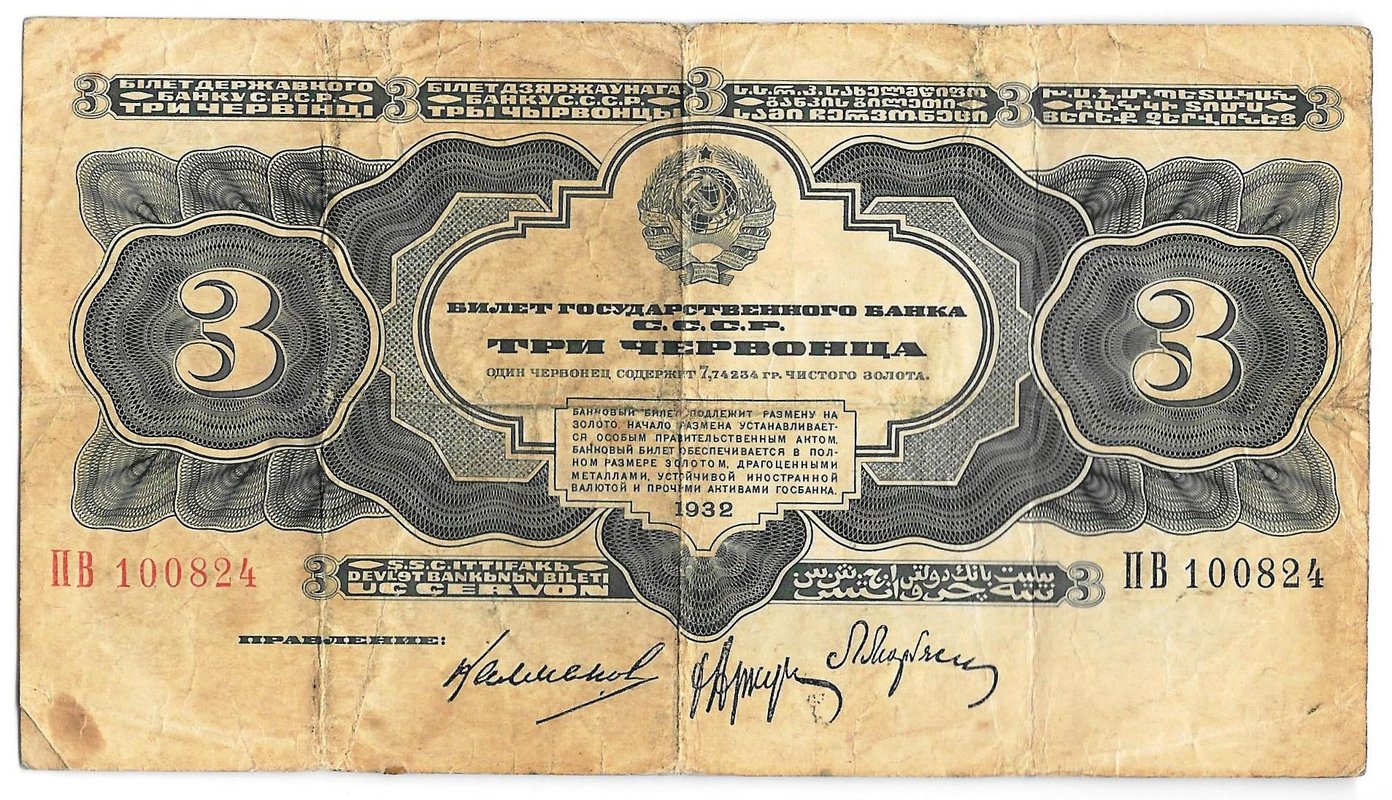 3 БІЛЕТ ДЕРЖАВНОГО
БАНКУ С.Р.С.Р.
ТРИ ЧЕРВІНЦІ
3 БІЛЕТ ДЗЯРЖАУНАГА
БАНКУ С.С.С.Р.
ТРЫ ЧЫРВОНЦЫ
3 ს.ს.რ.კ. სახელმწიფო
ბანკის ბილეთი
სამი ჩერვონეცი
3 Խ.Ս.Հ.Մ. ՊԵՏԱԿԱՆ
ԲԱՆԿԻ ՏՈՄՍ
ՅԵՐԵՔ ՉԵՐՎՈՆԵՑ 3
3
3
БИЛЕТ ГОСУДАРСТВЕННОГО БАНКА
С.С.С.Р.
ТРИ ЧЕРВОНЦА
ОДИН ЧЕРВОНЕЦ СОДЕРЖИТ 7,74234 ГР. ЧИСТОГО ЗОЛОТА.
БАНКОВЫЙ БИЛЕТ ПОДЛЕЖИТ РАЗМЕНУ НА
ЗОЛОТО. НАЧАЛО РАЗМЕНА УСТАНАВЛИВАЕТ-
СЯ ОСОБЫМ ПРАВИТЕЛЬСТВЕННЫМ АКТОМ.
БАНКОВЫЙ БИЛЕТ ОБЕСПЕЧИВАЕТСЯ В ПОЛ-
НОМ РАЗМЕРЕ ЗОЛОТОМ, ДРАГОЦЕННЫМИ
МЕТАЛЛАМИ, УСТОЙЧИВОЙ ИНОСТРАННОЙ
ВАЛЮТОЙ И ПРОЧИМИ АКТИВАМИ ГОСБАНКА.
1932
ПВ 100824
3 S.S.C. ITTIFAKЬ
DEVLƏT BANKЬNЬN BILETI
UC CERVON
3
ПВ 100824
ПРАВЛЕНИЕ:
Калманов